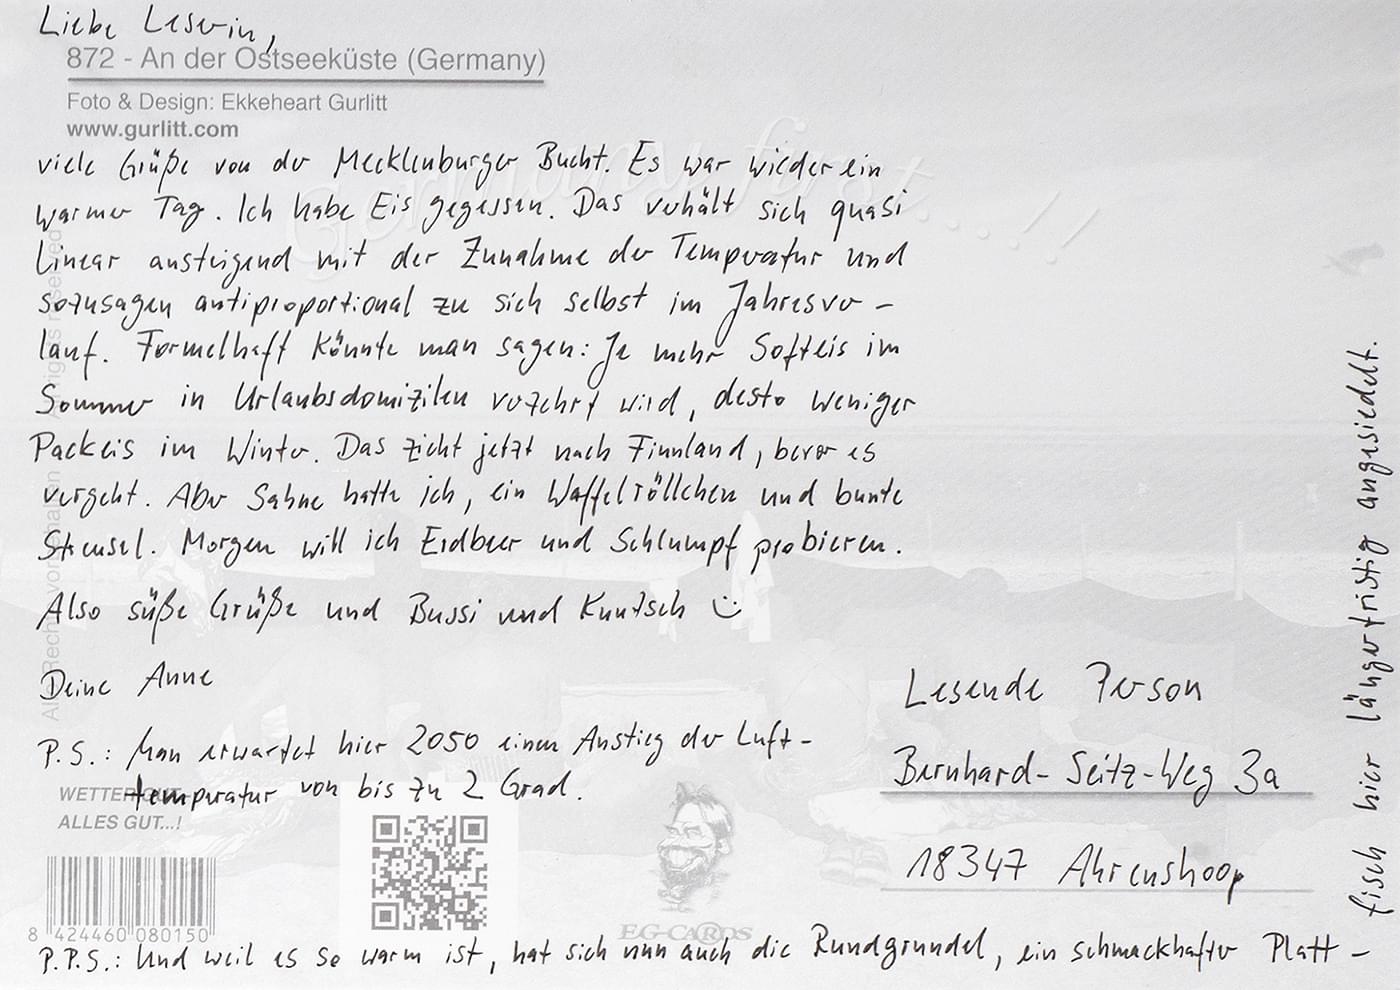 Liebe Leserin,
872 - An der Ostseeküste (Germany)
Foto & Design: Ekkeheart Gurlitt
www.gurlitt.com
Germany first...!!
viele Grüße von der Mecklenburger Bucht. Es war wieder ein
warmer Tag. Ich habe Eis gegessen. Das verhält sich quasi
linear ansteigend mit der Zunahme der Temperatur und
sozusagen antiproportional zu sich selbst im Jahresver-
lauf. Formelhaft könnte man sagen: Je mehr Softeis im
Sommer in Urlaubsdomizilen verzehrt wird, desto weniger
Packeis im Winter. Das zieht jetzt nach Finnland, bevor es
vergeht. Aber Sahne hatte ich, ein Waffelröllchen und bunte
Streusel. Morgen will ich Erdbeer und Schlumpf probieren.
Also süße Grüße und Bussi und Knutsch
Deine Anne
P.S.: Man erwartet hier 2050 einen Anstieg der Luft-
temperatur von bis zu 2 Grad.
WETTER GUT -
ALLES GUT...!
8 424460 080150
EG-CARDS
Lesende Person
Bernhard-Seitz-Weg 3a
18347 Ahrenshoop
P.P.S.: Und weil es so warm ist, hat sich nun auch die Rundgrundel, ein schmackhafter Platt-
fisch hier längerfristig angesiedelt.
Alle Rechte vorbehalten
All rights reserved